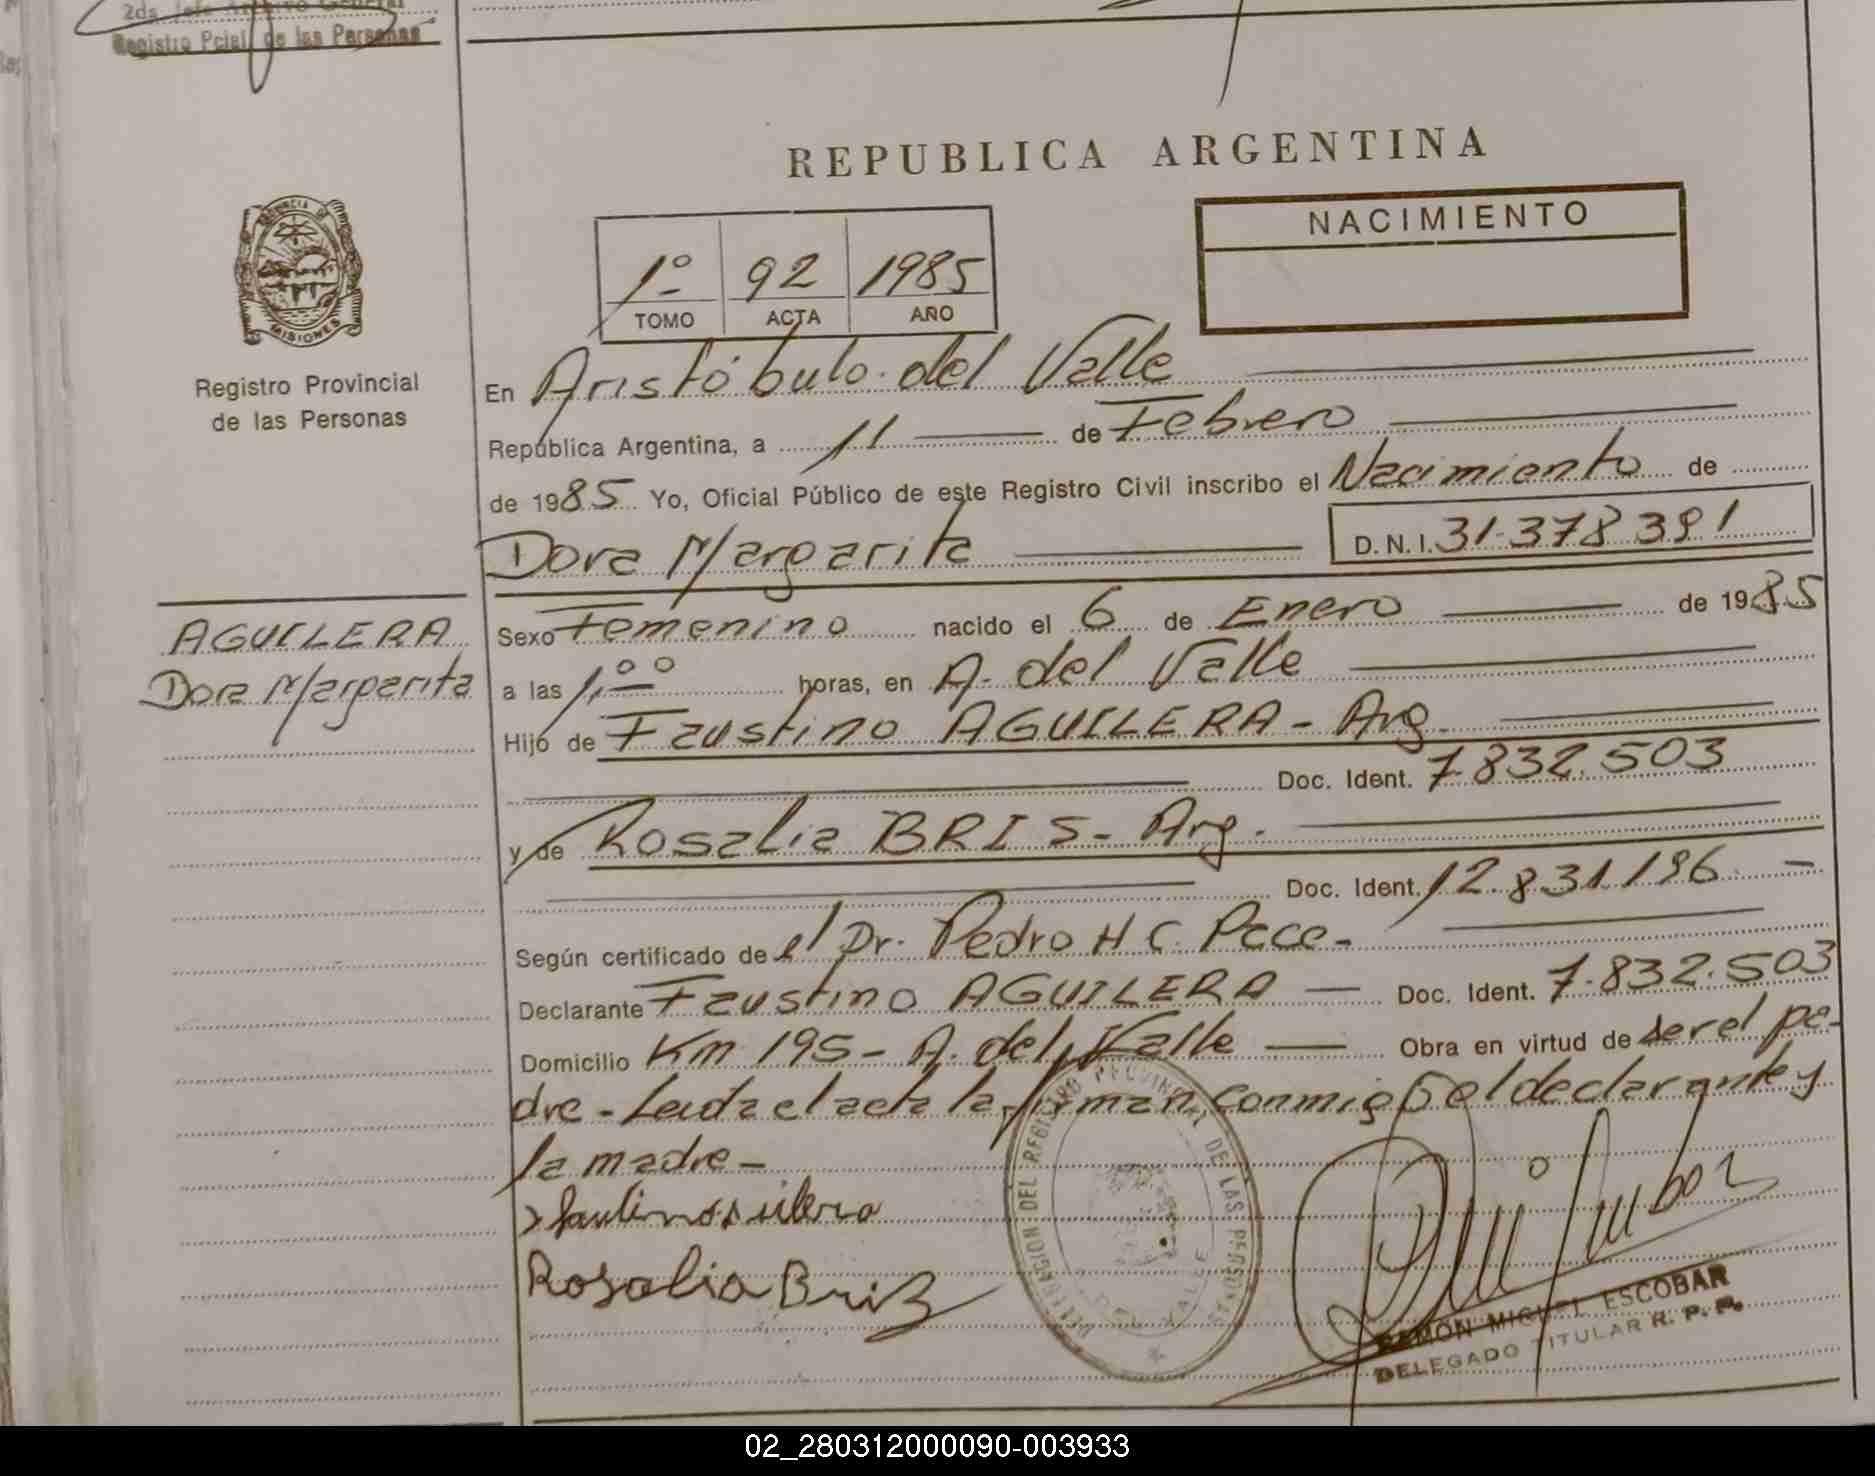 2do Jefe Archivo General
Registro Pcial. de las Personas
REPUBLICA ARGENTINA
PROVINCIA DE
MISIONES
Registro Provincial
de las Personas
1º 92 1985
TOMO ACTA AÑO
NACIMIENTO
En Aristóbulo del Valle
República Argentina, a 11 de Febrero
de 1985 Yo, Oficial Público de este Registro Civil inscribo el Nacimiento de
Dora Margarita D. N. I. 31.378.391
AGUILERA
Dora Margarita
Sexo Femenino nacido el 6 de Enero de 1985
a las 1,00 horas, en A. del Valle
Hijo de Faustino AGUILERA - Arg.
Doc. Ident. 7.832.503
y de Rosalia BRIS - Arg.
Doc. Ident. 12.831.196. -
Según certificado de el Dr. Pedro H C. Pace -
Declarante Faustino AGUILERA — Doc. Ident. 7.832.503
Domicilio Km 195 - A. del Valle — Obra en virtud de ser el pa-
dre - Leida el acta la firman conmigo el declarante y
la madre -
Rosalia Briz
DELEGACION DEL REGISTRO PROVINCIAL DE LAS PERSONAS
DEL VALLE
RAMON MIGUEL ESCOBAR
DELEGADO TITULAR R. P. P.
02_280312000090-003933